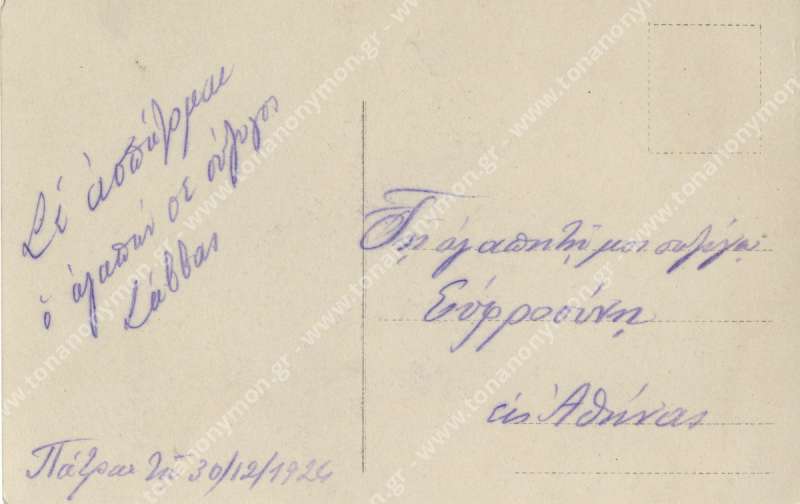 Σέ ἀσπάζομαι
ὁ ἀγαπῶν σε σύζυγος
Σάββας
Πάτραι τῇ 30/12/1926
Τῇ ἀγαπητῇ μοι συζύγῳ
Εὐφροσύνῃ
εἰς Ἀθήνας
www.tonanonymon.gr